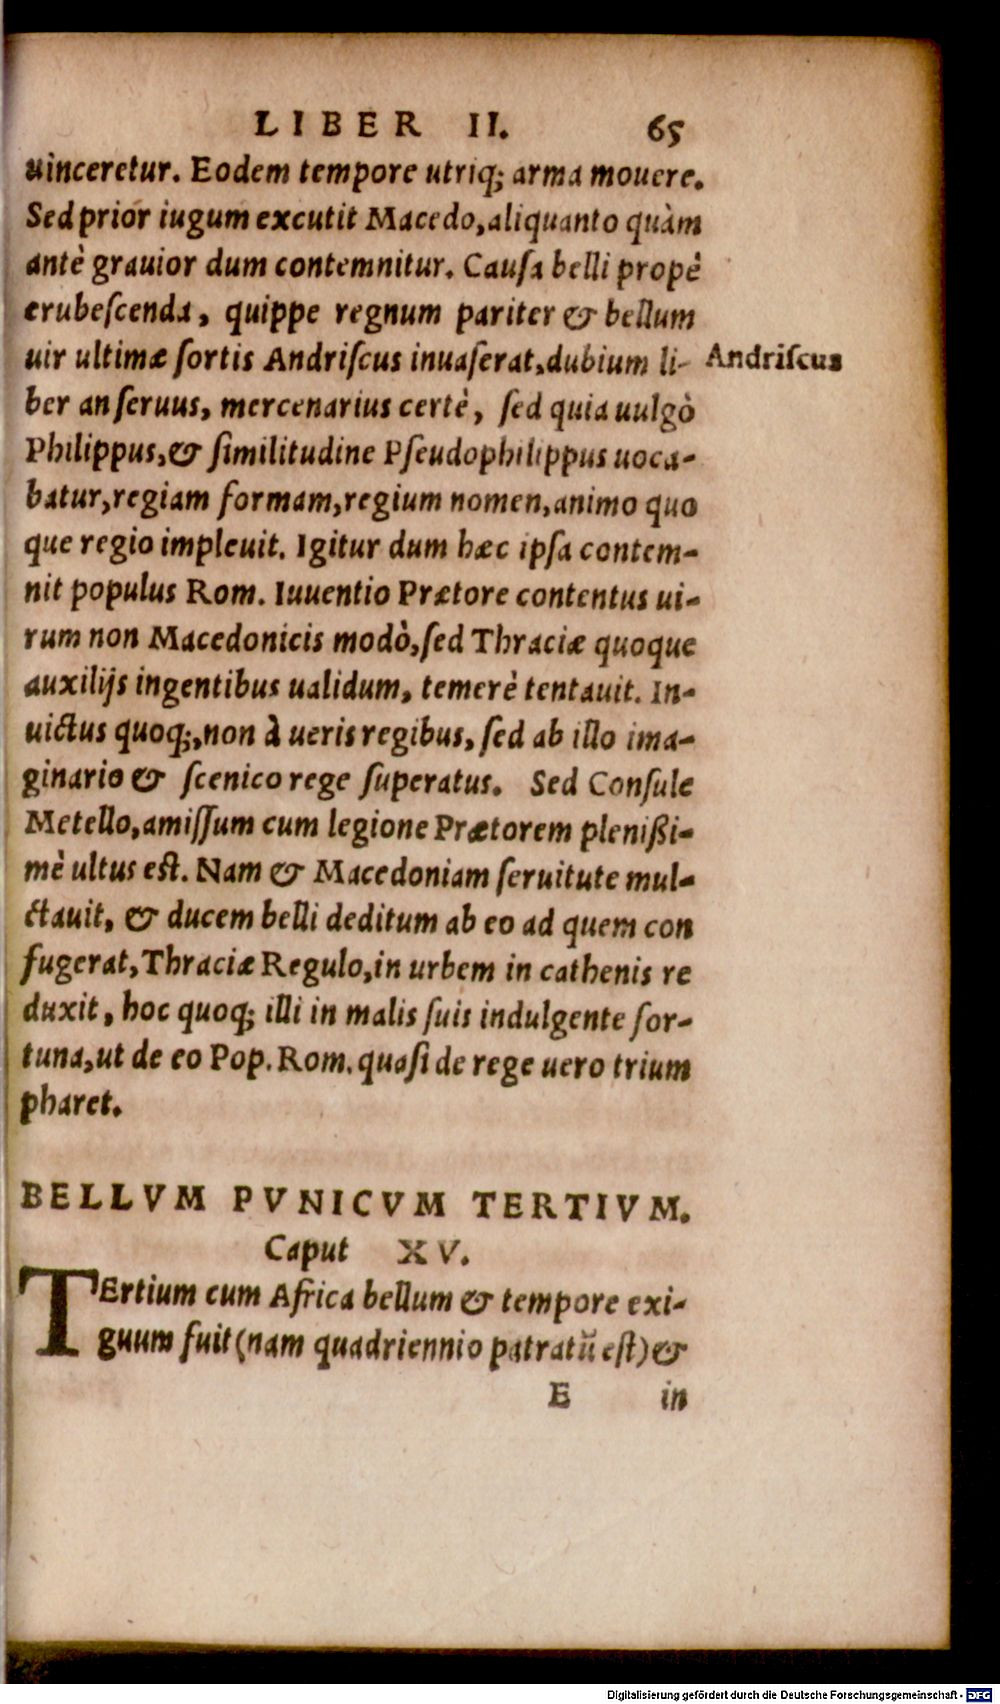 LIBER II. 65
uinceretur. Eodem tempore utriq; arma mouere.
Sed prior iugum excutit Macedo, aliquanto quàm
antè grauior dum contemnitur. Cauſa belli propè
erubeſcenda, quippe regnum pariter & bellum
uir ultimæ ſortis Andriſcus inuaſerat, dubium li-
Andriſcus
ber an ſeruus, mercenarius certè, ſed quia uulgò
Philippus, & ſimilitudine Pſeudophilippus uoca-
batur, regiam formam, regium nomen, animo quo
que regio impleuit. Igitur dum hæc ipſa contem-
nit populus Rom. Iuuentio Prætore contentus ui-
rum non Macedonicis modò, ſed Thraciæ quoque
auxilijs ingentibus ualidum, temerè tentauit. In-
uictus quoq;, non à ueris regibus, ſed ab illo ima-
ginario & ſcenico rege ſuperatus. Sed Conſule
Metello, amiſſum cum legione Prætorem plenißi-
mè ultus eſt. Nam & Macedoniam ſeruitute mul-
ctauit, & ducem belli deditum ab eo ad quem con
fugerat, Thraciæ Regulo, in urbem in cathenis re
duxit, hoc quoq; illi in malis ſuis indulgente for-
tuna, ut de eo Pop. Rom. quaſi de rege uero trium
pharet.
BELLVM PVNICVM TERTIVM.
Caput XV.
TErtium cum Africa bellum & tempore exi-
guum fuit (nam quadriennio patratũ eſt) &
E in
Digitalisierung gefördert durch die Deutsche Forschungsgemeinschaft - DFG